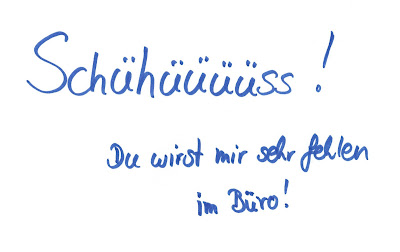 Schühüüüüss!
Du wirst mir sehr fehlen
im Büro!